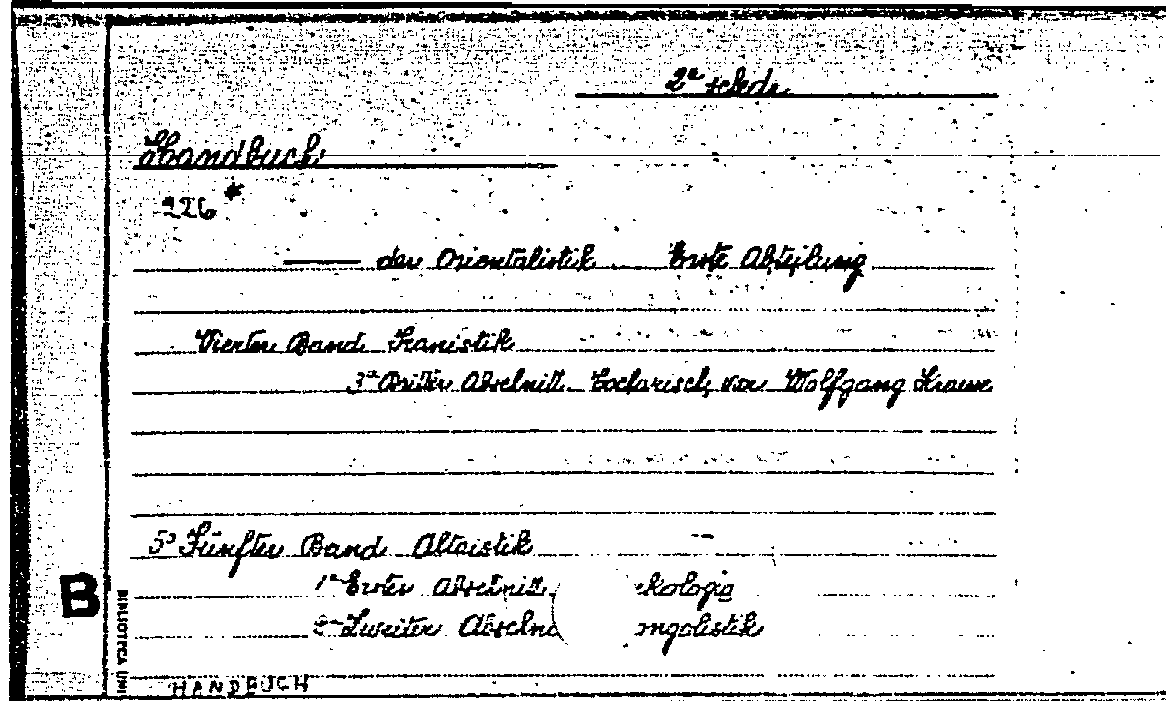 2ª scheda
Handbuch
226*
der Orientalistik Erste Abteilung
Vierter Band Iranistik
3º Dritter Abschnitt. Tocharisch von Wolfgang Krause
5º Fünfter Band Altaistik
1º Erster Abschnitt. kologie
2º Zweiter Abschn ongolistik
B
BIBLIOTECA UNI
HANDBUCH